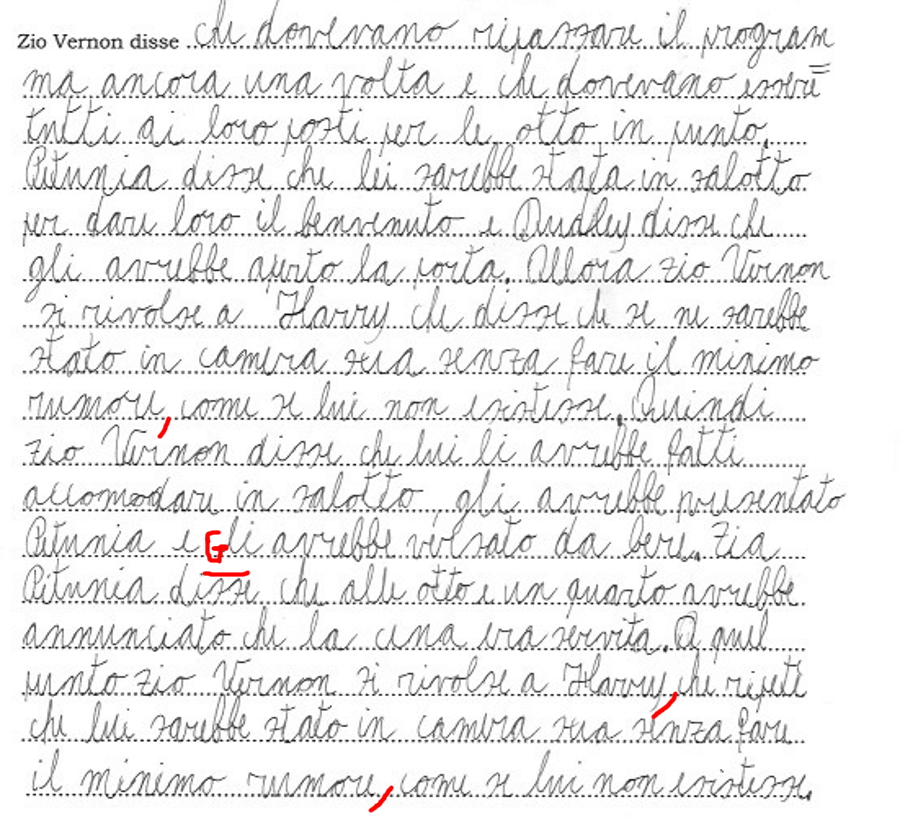 Zio Vernon disse che dovevano ripassare il program
ma ancora una volta e che dovevano essere
tutti ai loro posti per le otto in punto.
Petunia disse che lei sarebbe stata in salotto
per dare loro il benvenuto e Dudley disse che
gli avrebbe aperto la porta. Allora zio Vernon
si rivolse a Harry che disse che se ne sarebbe
stato in camera sua senza fare il minimo
rumore, come se lui non esistesse. Quindi
zio Vernon disse che lui li avrebbe fatti
accomodare in salotto, gli avrebbe presentato
Petunia e Gli avrebbe versato da bere. Zia
Petunia disse che alle otto e un quarto avrebbe
annunciato che la cena era servita. A quel
punto zio Vernon si rivolse a Harry, che ripeté
che lui sarebbe stato in camera sua senza fare
il minimo rumore, come se lui non esistesse.